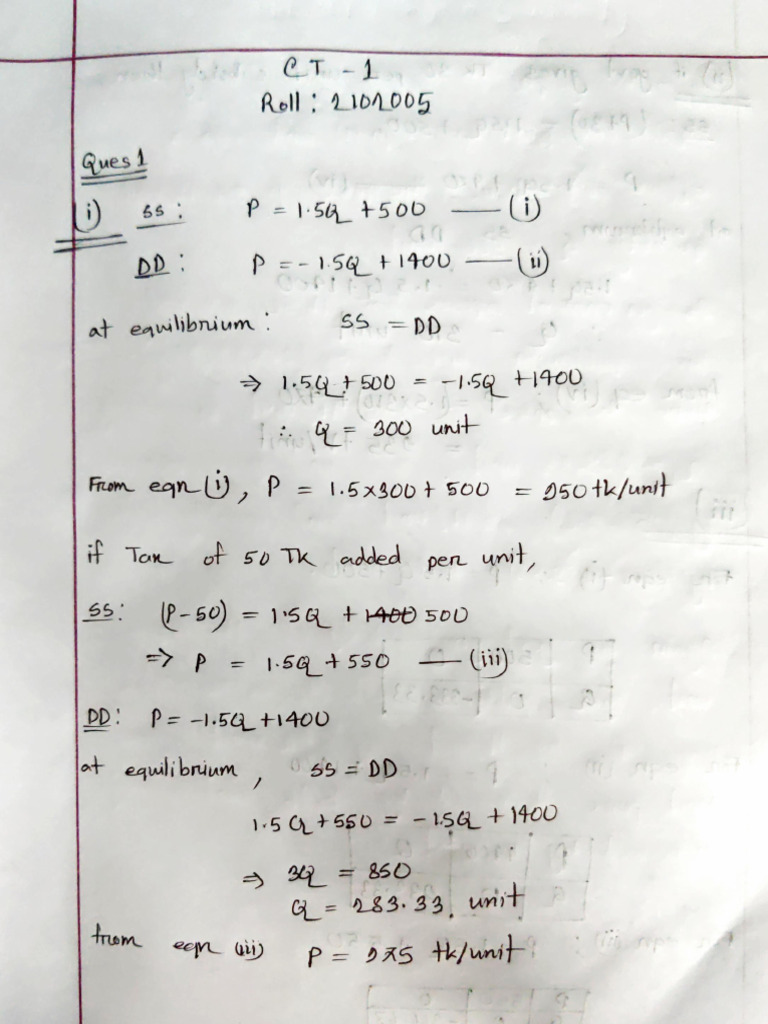 CT - 1
Roll: 2101005
Ques 1
i) SS: P = 1.5Q + 500 —— (i)
DD: P = - 1.5Q + 1400 —— (ii)
at equilibrium: SS = DD
⇒ 1.5Q + 500 = -1.5Q + 1400
∴ Q = 300 unit
From eqn (i), P = 1.5×300 + 500 = 950 tk/unit
if Tax of 50 TK added per unit,
SS: (P-50) = 1.5Q + 1400 500
⇒ P = 1.5Q + 550 —— (iii)
DD: P = -1.5Q + 1400
at equilibrium, SS = DD
1.5Q + 550 = - 1.5Q + 1400
⇒ 3Q = 850
Q = 283.33 unit
from eqn (iii) P = 975 tk/unit